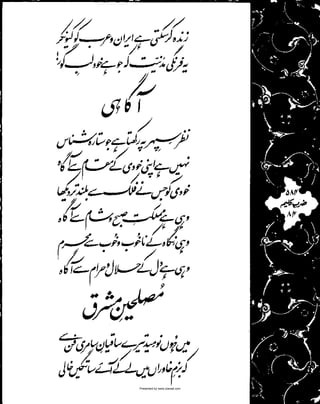 زندہ کر سکتی ہے ایران و عرب کو کیونکر
یہ فرنگی مدنیّت کہ جو ہے خود لبِ گور!
آگاہی
نظر سپہر پہ رکھتا ہے جو ستارہ شناس
نہیں ہے اپنی خودی کے مقام سے آگاہ
خودی کو جس نے فلک سے بلند تر دیکھا
وہی ہے مملکتِ صبح و شام سے آگاہ
وہی نگاہ کے ناخوب و خوب سے محرم
وہی ہے دل کے حلال و حرام سے آگاہ
مصلحینِ مشرق
میں ہوں نومید تیرے ساقیانِ سامری فن سے
کہ بزمِ خاوراں میں لے کے آئے ساتگیں خالی
۵۸۴
ضربِ کلیم
۸۴